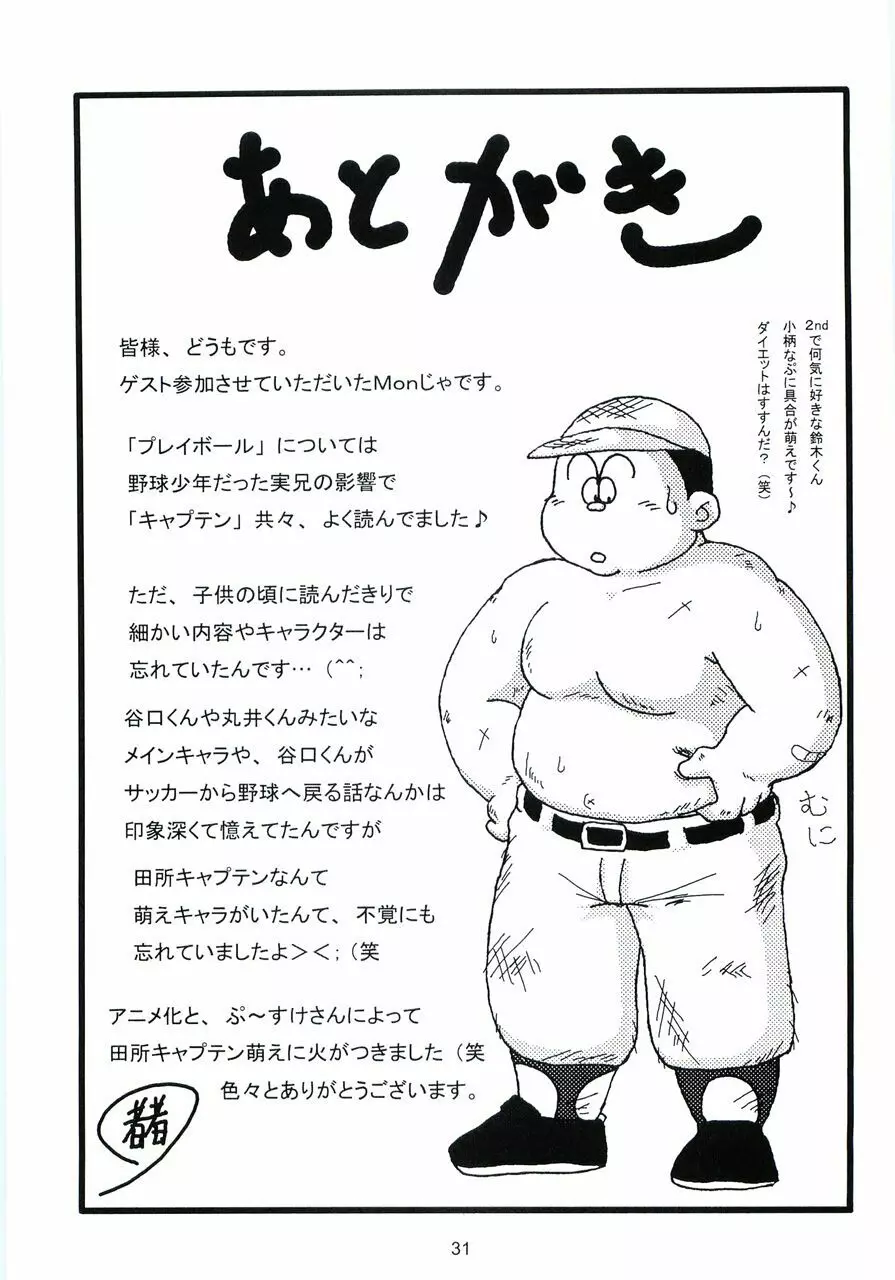 あとがき
皆様、どうもです。
ゲスト参加させていただいたMonじゃです。
「プレイボール」については
野球少年だった実兄の影響で
「キャプテン」共々、よく読んでました♪
ただ、子供の頃に読んだきりで
細かい内容やキャラクターは
忘れていたんです…（^^;
谷口くんや丸井くんみたいな
メインキャラや、谷口くんが
サッカーから野球へ戻る話なんかは
印象深くて憶えてたんですが
田所キャプテンなんて
萌えキャラがいたんて、不覚にも
忘れていましたよ＞＜;（笑
アニメ化と、ぷ～すけさんによって
田所キャプテン萌えに火がつきました（笑
色々とありがとうございます。
2ndで何気に好きな鈴木くん
小柄なぷに具合が萌えです～♪
ダイエットはすすんだ？（笑）
むに
31